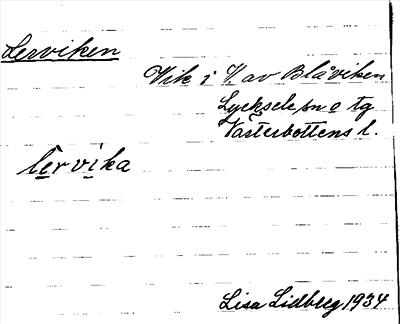 Lerviken
Vik i V. av Blåviken
Lycksele sn o tg
Västerbottens l.
lervika
Lisa Lidberg 1934